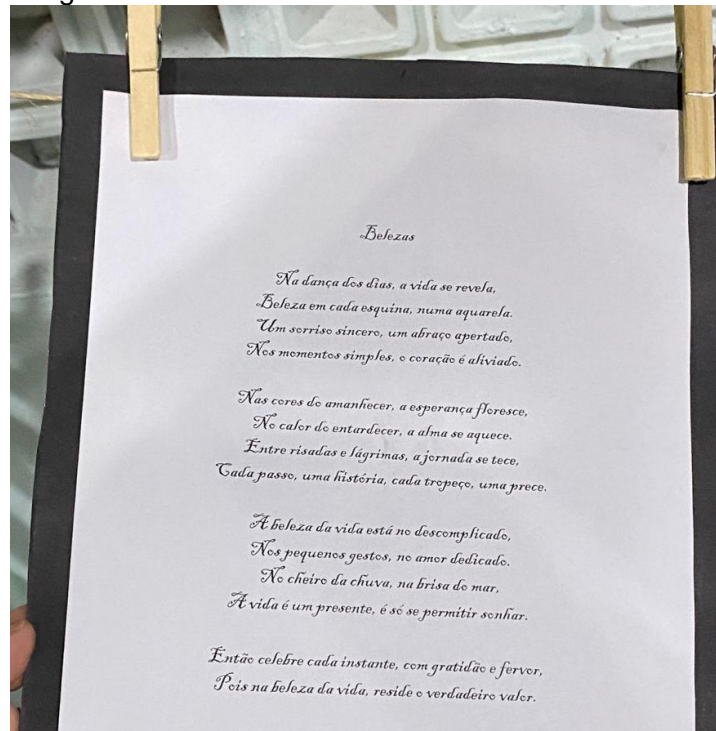 Belezas
Na dança dos dias, a vida se revela,
Beleza em cada esquina, numa aquarela.
Um sorriso sincero, um abraço apertado,
Nos momentos simples, o coração é aliviado.
Nas cores do amanhecer, a esperança floresce,
No calor do entardecer, a alma se aquece.
Entre risadas e lágrimas, a jornada se tece,
Cada passo, uma história, cada tropeço, uma prece.
A beleza da vida está no descomplicado,
Nos pequenos gestos, no amor dedicado.
No cheiro da chuva, na brisa do mar,
A vida é um presente, é só se permitir sonhar.
Então celebre cada instante, com gratidão e fervor,
Pois na beleza da vida, reside o verdadeiro valor.